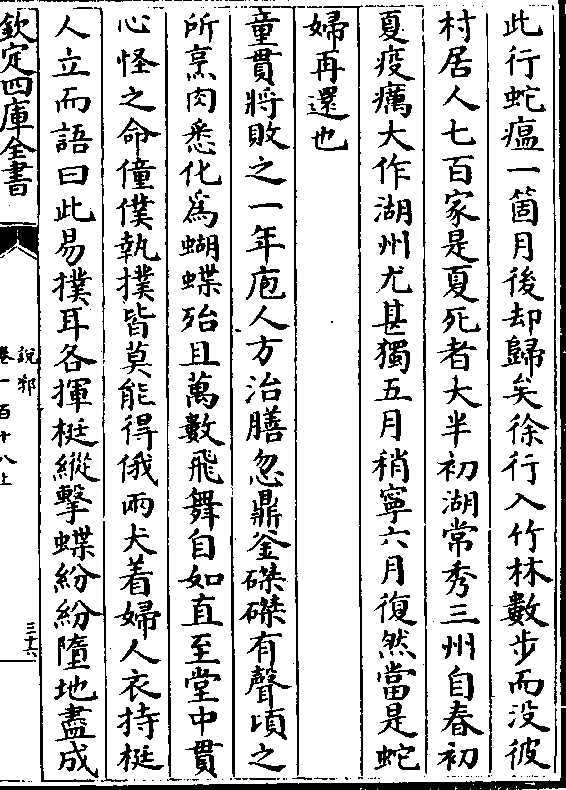 此行蛇瘟一箇月後却歸矣徐行入竹林數步而没彼
村居人七百家是夏死者大半初湖常秀三州自春初
夏疫癘大作湖州尤甚獨五月稍寧六月復然當是蛇
婦再還也
童貫將敗之一年庖人方治膳忽鼎釡磔磔有聲頃之
所烹肉悉化爲蝴蝶殆且萬數飛舞自如直至堂中貫
心怪之命僮僕執撲皆莫能得俄兩犬着婦人衣持梃
人立而語曰此易撲耳各揮梃縱擊蝶紛紛墮地盡成
欽定四庫全書
說郛
卷一百十八上
三十六